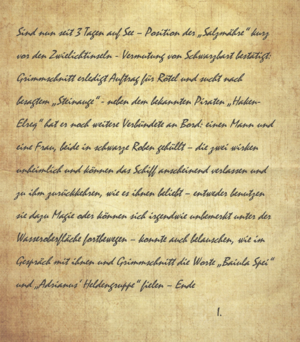 Sind nun seit 3 Tagen auf See – Position der „Salzmähre" kurz
vor den Zwielichtinseln - Vermutung von Schwarzbart bestätigt:
Grimmschnitt erledigt Auftrag für Rötel und sucht nach
besagtem „Steinauge" - neben dem bekannten Piraten „Haken-
Elreg" hat er noch weitere Verbündete an Bord: einen Mann und
eine Frau, beide in schwarze Roben gehüllt – die zwei wirken
unheimlich und können das Schiff anscheinend verlassen und
zu ihm zurückkehren, wie es ihnen beliebt – entweder benutzen
sie dazu Magie oder können sich irgendwie unbemerkt unter der
Wasseroberfläche fortbewegen – konnte auch belauschen, wie im
Gespräch mit ihnen und Grimmschnitt die Worte „Baiula Spei"
und „Adrianus' Heldengruppe" fielen – Ende
I.